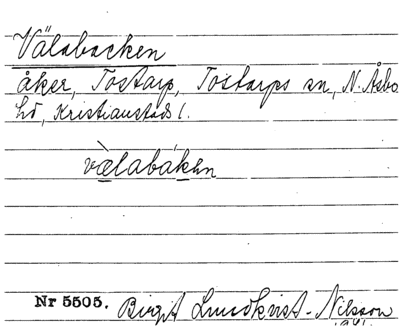 Välabacken
åker, Tostarp, Tostarps sn, N. Åsbo
hd, Kristianstads l.
vælabáken
Nr 5505. Birgit Lundkvist-Nilsson